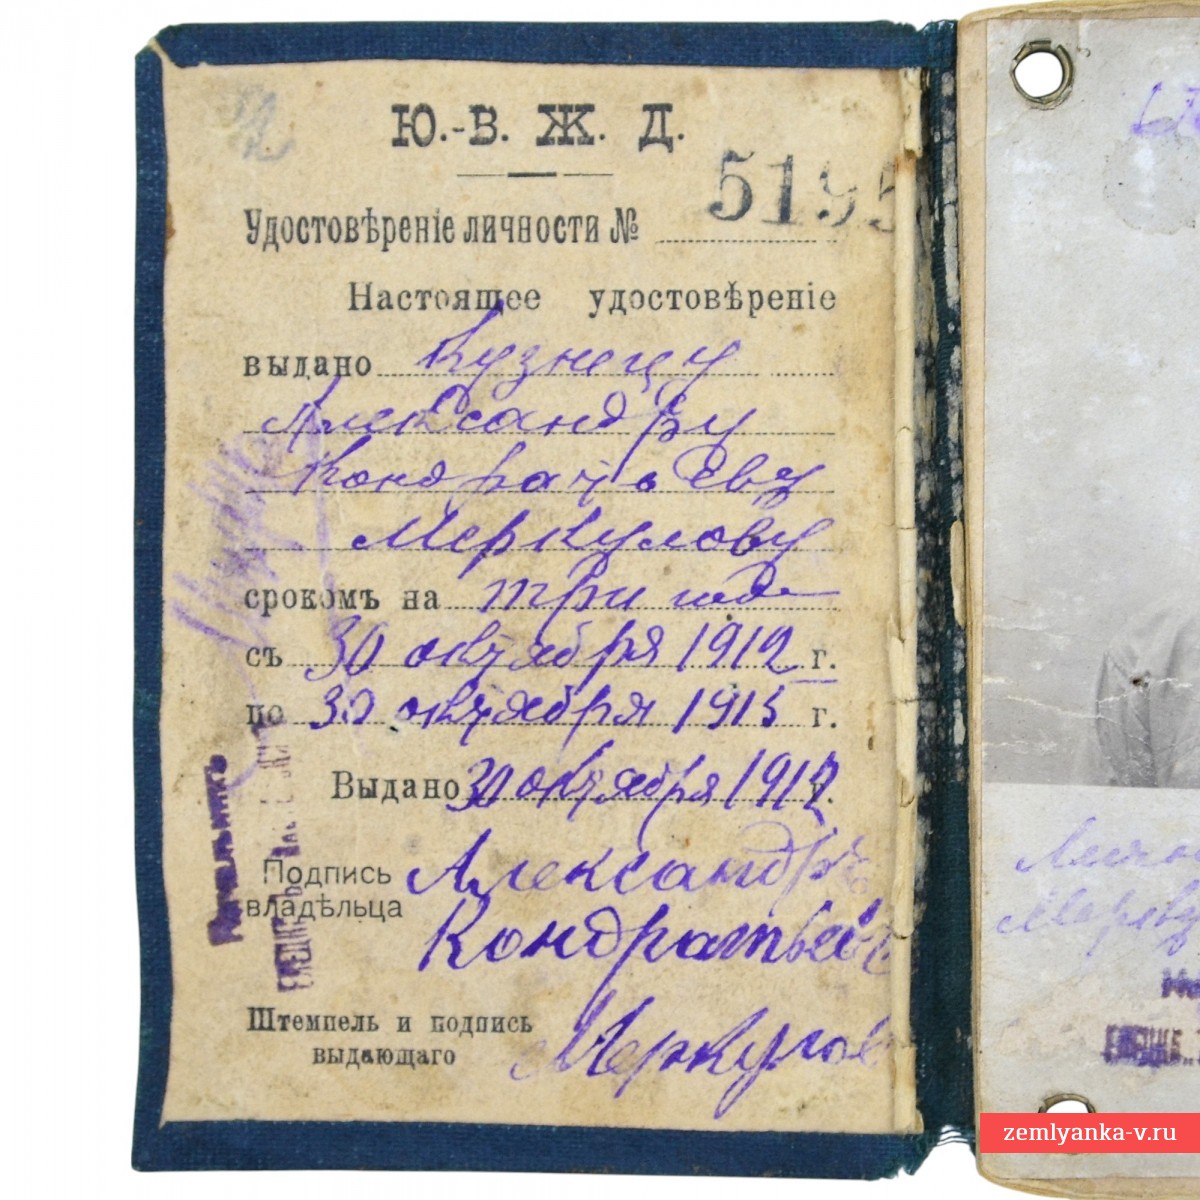 Ю.-В. Ж. Д.
Удостовѣреніе личности № 5195
Настоящее удостовѣреніе
выдано Кузнецу
Александру
Кондратьеву
Меркулову
срокомъ на три года
съ 30 октября 1912 г.
по 30 октября 1915 г.
Выдано 30 октября 1912 г.
Подпись
владѣльца
Александръ
Кондратьевъ
Меркулов
Штемпель и подпись
выдающаго
Начальникъ
zemlyanka-v.ru